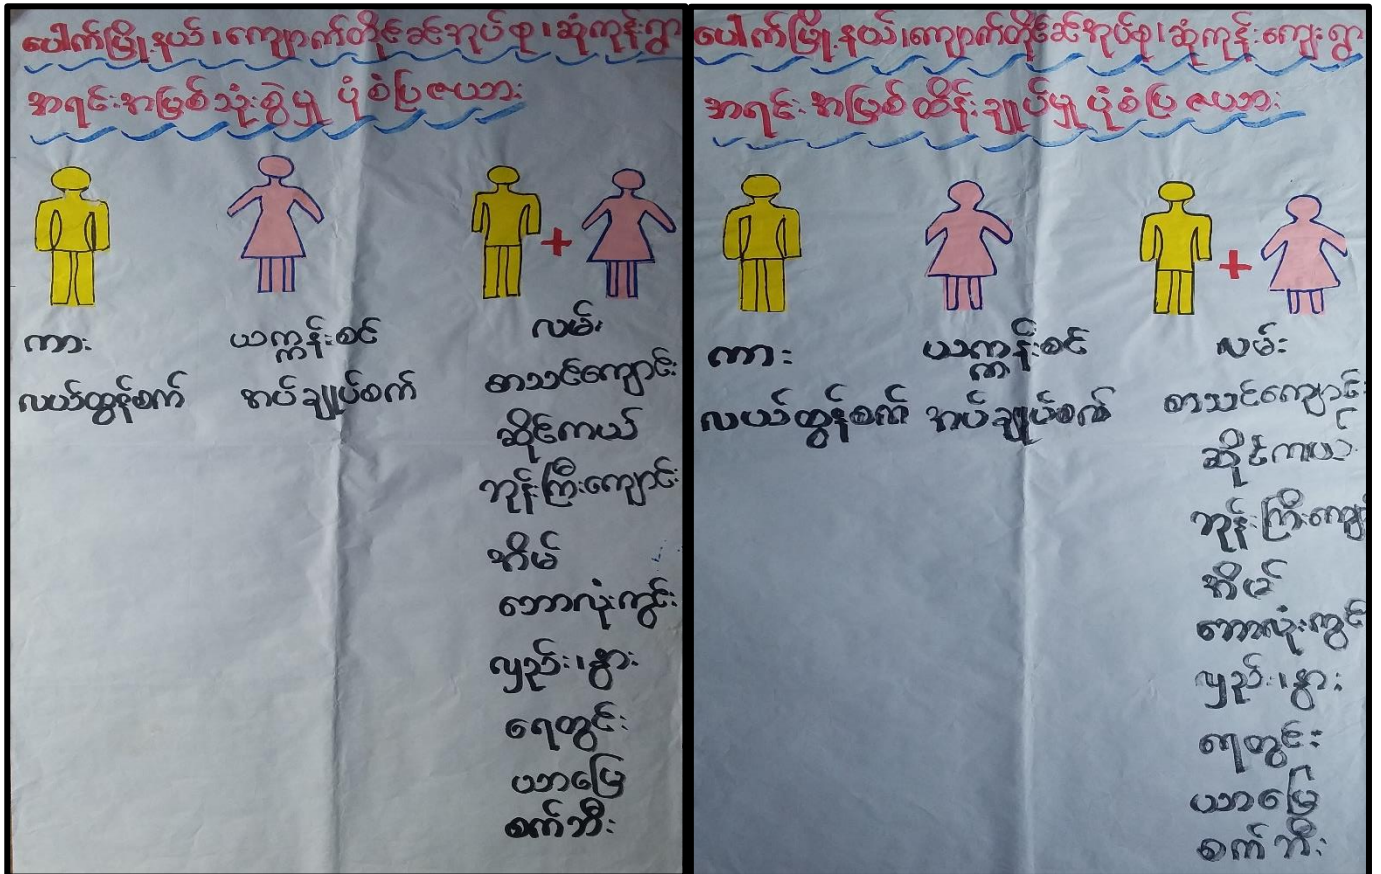 ပေါက်မြို့နယ်၊ကျောက်တိုင်အုပ်စု၊ဆုံကုန်းရွာ
အရင်းအမြစ်သုံးစွဲမှု ပုံစံပြဇယား
ကား
ယက္ကန်းစင်
လမ်း
လယ်ထွန်စက်
အပ်ချုပ်စက်
စာသင်ကျောင်း
ဆိုင်ကယ်
ဘုန်းကြီးကျောင်း
အိမ်
ဘောလုံးကွင်း
လှည်း၊နွား
ရေတွင်း
ယာမြေ
စက်ဘီး
ပေါက်မြို့နယ်၊ကျောက်တိုင်အုပ်စု၊ဆုံကုန်းကျေးရွာ
အရင်းအမြစ်ထိန်းချုပ်မှု ပုံစံပြဇယား
ကား
ယက္ကန်းစင်
လမ်း
လယ်ထွန်စက်
အပ်ချုပ်စက်
စာသင်ကျောင်း
ဆိုင်ကယ်
ဘုန်းကြီးကျော
အိမ်
ဘောလုံးကွင်
လှည်း၊နွား
ရေတွင်း
ယာမြေ
စက်ဘီး